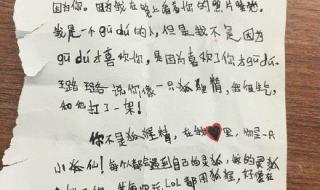 因为你。因为我在晚上看着你的照片
我是一个gū dú的人，但是我不是因为
gū dú才喜欢你，是因为喜欢了你才gū dú.
璐璐说你像一只狐狸精，我很生气，
和他打了一架！
你不是狐狸精，在我❤里，你是一只
小狐仙！每个人都会遇到自己的灵狐，我的灵狐
LOL都用狐狸，